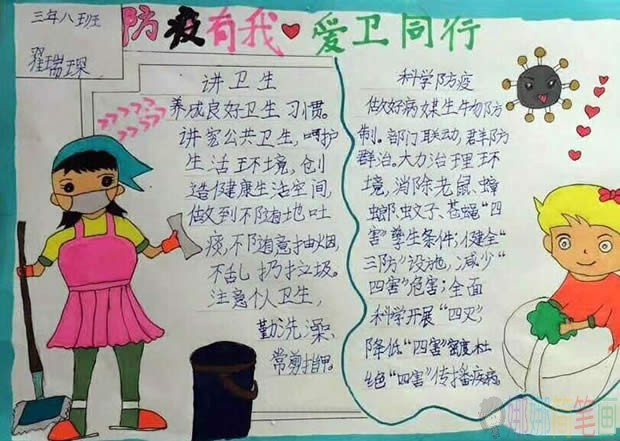 三年八班
翟瑞琛
防疫有我 爱卫同行
讲卫生
养成良好卫生习惯。
讲究公共卫生，呵护
生活环境，创
造健康生活空间，
做到不随地吐
痰，不随意抽烟，
不乱扔垃圾。
注意个人卫生，
勤洗澡、
常剪指甲。
科学防疫
做好病媒生物防
制。部门联动，群防
群治。大力治理环
境，消除老鼠、蟑
螂、蚊子、苍蝇“四
害”孳生条件；健全“
三防”设施，减少“
四害”危害；全面
科学开展“四灭”
降低“四害”密度杜
绝“四害”传播疾病。
娜娜简笔画